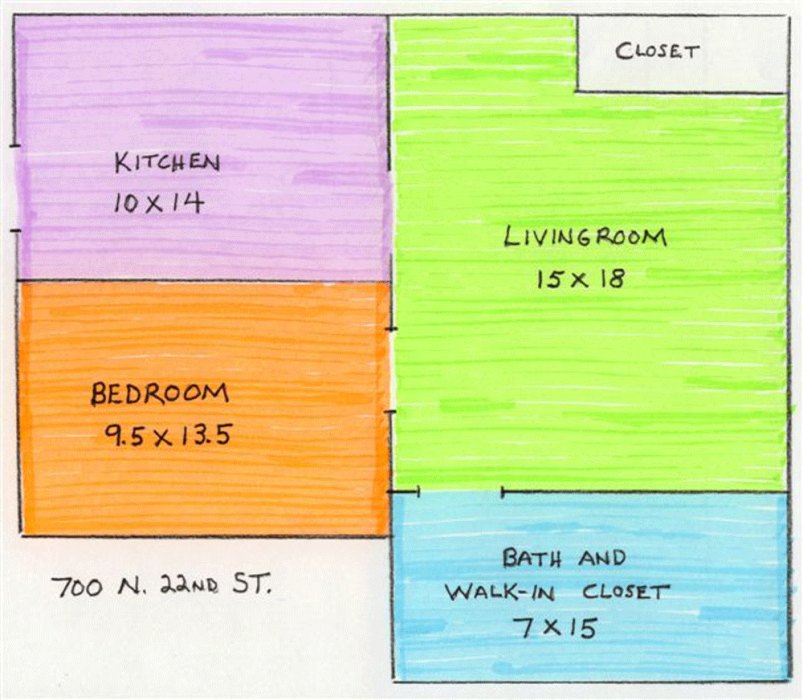 CLOSET
KITCHEN
10 X 14
LIVINGROOM
15 X 18
BEDROOM
9.5 X 13.5
BATH AND
WALK-IN CLOSET
7 X 15
700 N. 22ND ST.